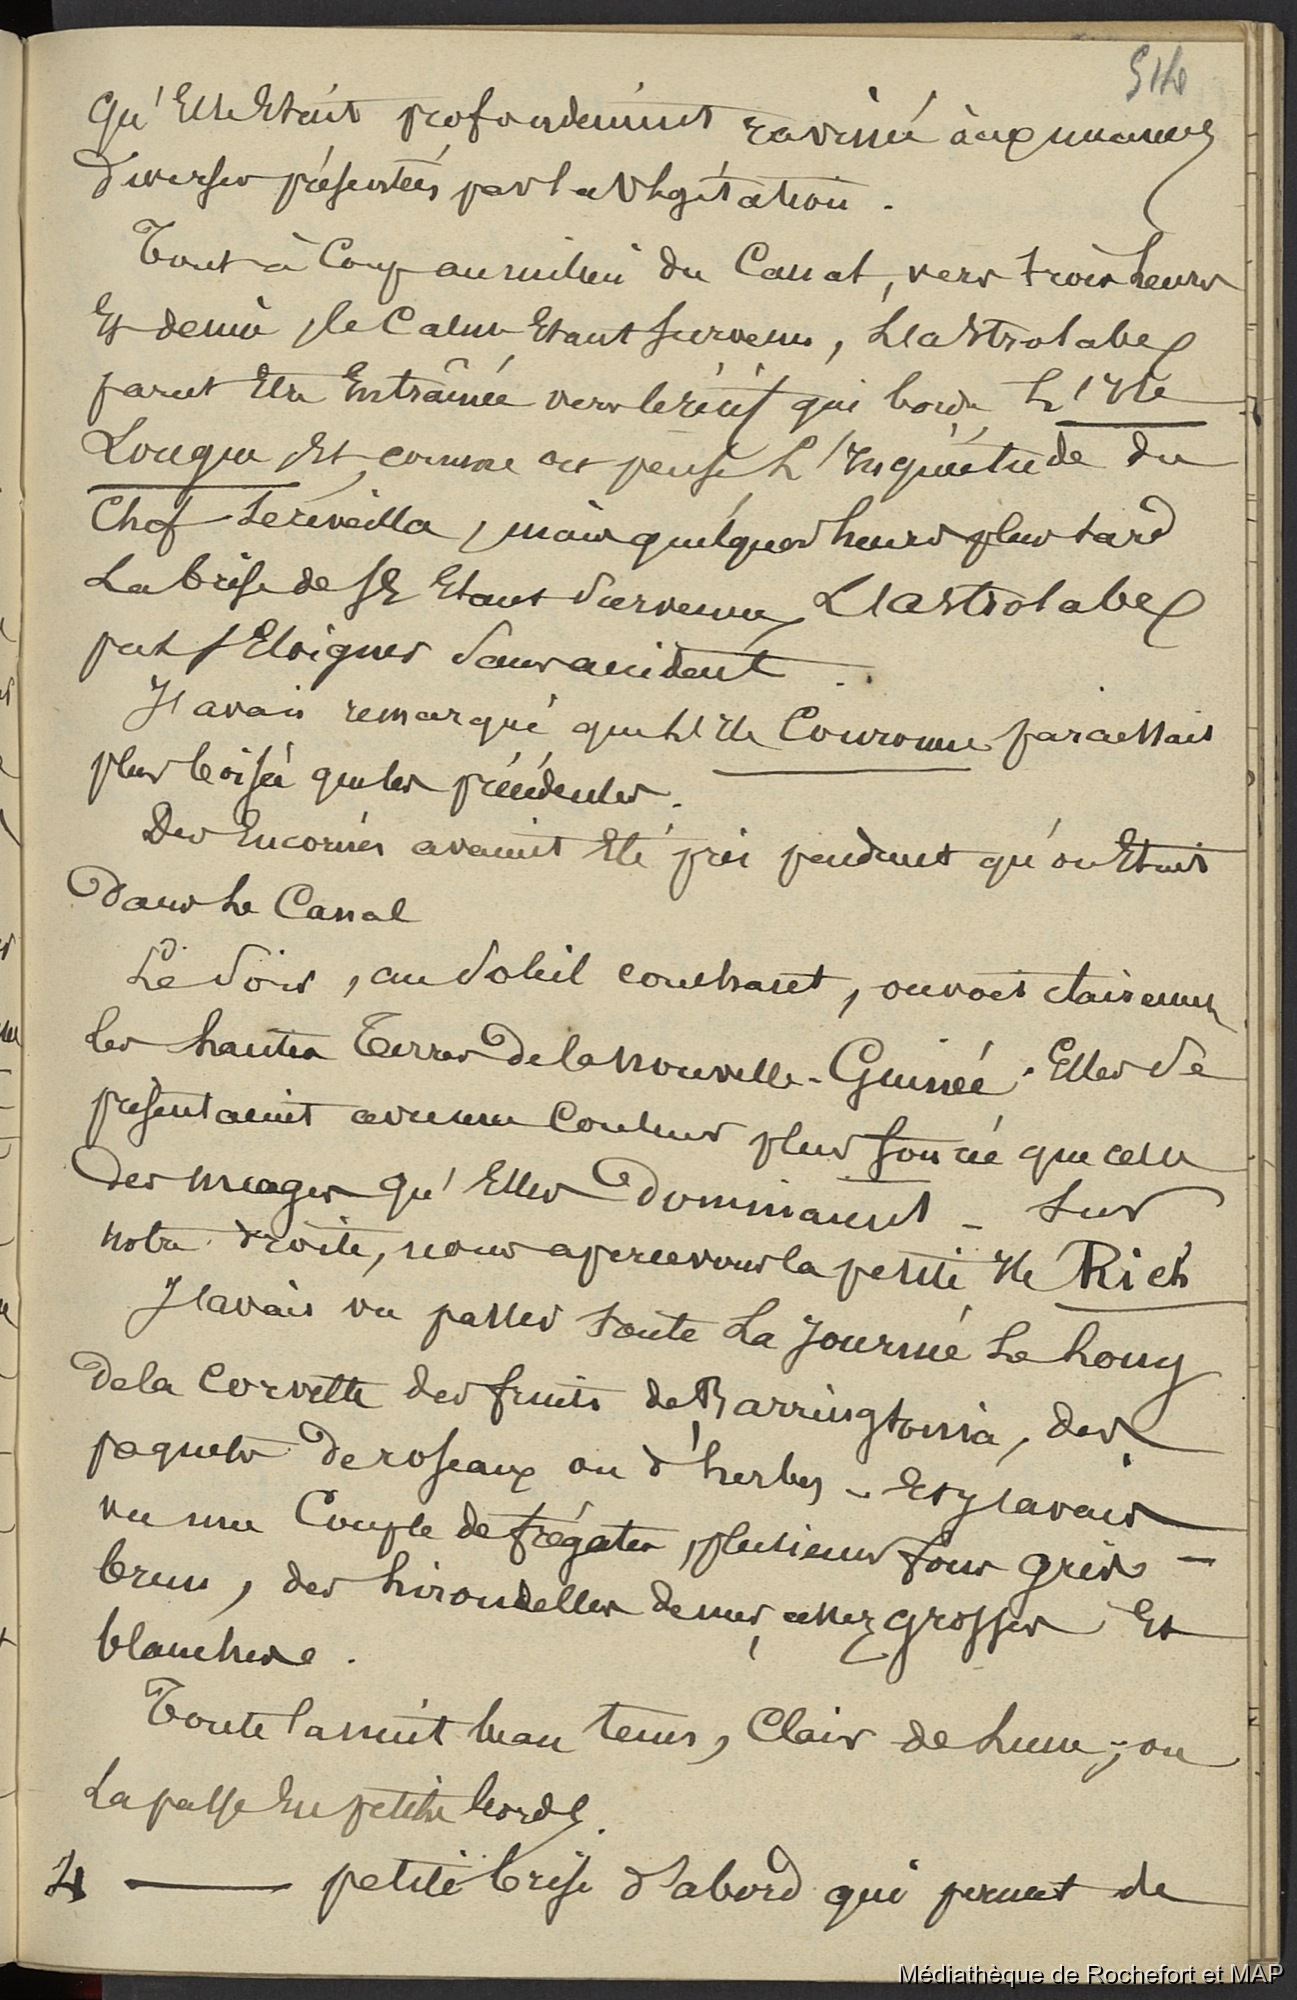 514
qu'Elle Etait profondement ravinée aux nuances
diverses présentées par la Végétation.
Tout à Coup au milieu du Canal, vers trois heures
Et demie, le Calme Etant survenu, L'astrolabe
parut Etre Entraînée vers le récif qui borde L'Ile
Longue Et, comme on pense L'Inquiétude du
Chef se réveilla, mais quelques heures plus tard
La brise de SE Etant survenue, L'astrolabe
put s'Eloigner sans accident.
J'avais remarqué que L'Ile Couronne paraissait
plus boisée que les précédentes.
Des Encornés avaient Eté pris pendant qu'on Etait
dans Le Canal
Le Soir, au Soleil couchant, on voit clairement
Les hautes Terres de la nouvelle-Guinée. Elles se
présentaient avec une Couleur plus foncée que celle
des nuages qu'Elles dominaient – Sur
notre droite, nous apercevons la petite Ile Rich
J'avais vu passer toute La Journée Le Long
de la Corvette des fruits de Barringtonia, des
paquets de roseaux ou d'herbes – Et j'avais
vu une Couple de frégates, plusieurs fous gris –
brun, des hirondelles de mer, assez grosses Et
blanches.
Toute la nuit beau tems, Clair de Lune; on
La passe En petits bords.
4 — petite brise d'abord qui permet de
Médiathèque de Rochefort et MAP